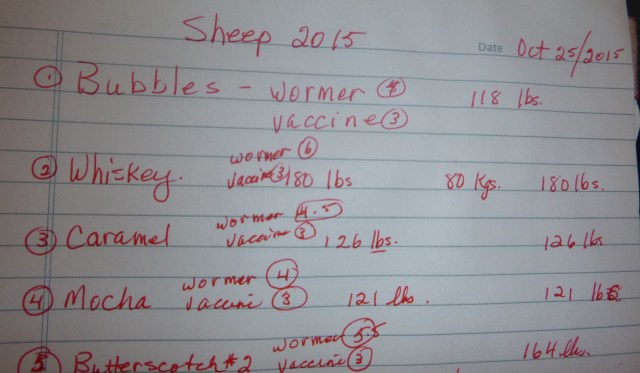 Sheep 2015
Date Oct 25/2015
① Bubbles - wormer ④ 118 lbs.
vaccine ③
wormer ⑥
② Whiskey. vaccine ③ 180 lbs 80 Kgs. 180 lbs.
wormer 4.5
③ Caramel vaccine ③ 126 lbs. 126 lbs
wormer ④
④ Mocha vaccine ③ 121 lbs. 121 lbs
wormer 5.5
⑤ Butterscotch #2 vaccine ③ 164 lbs.